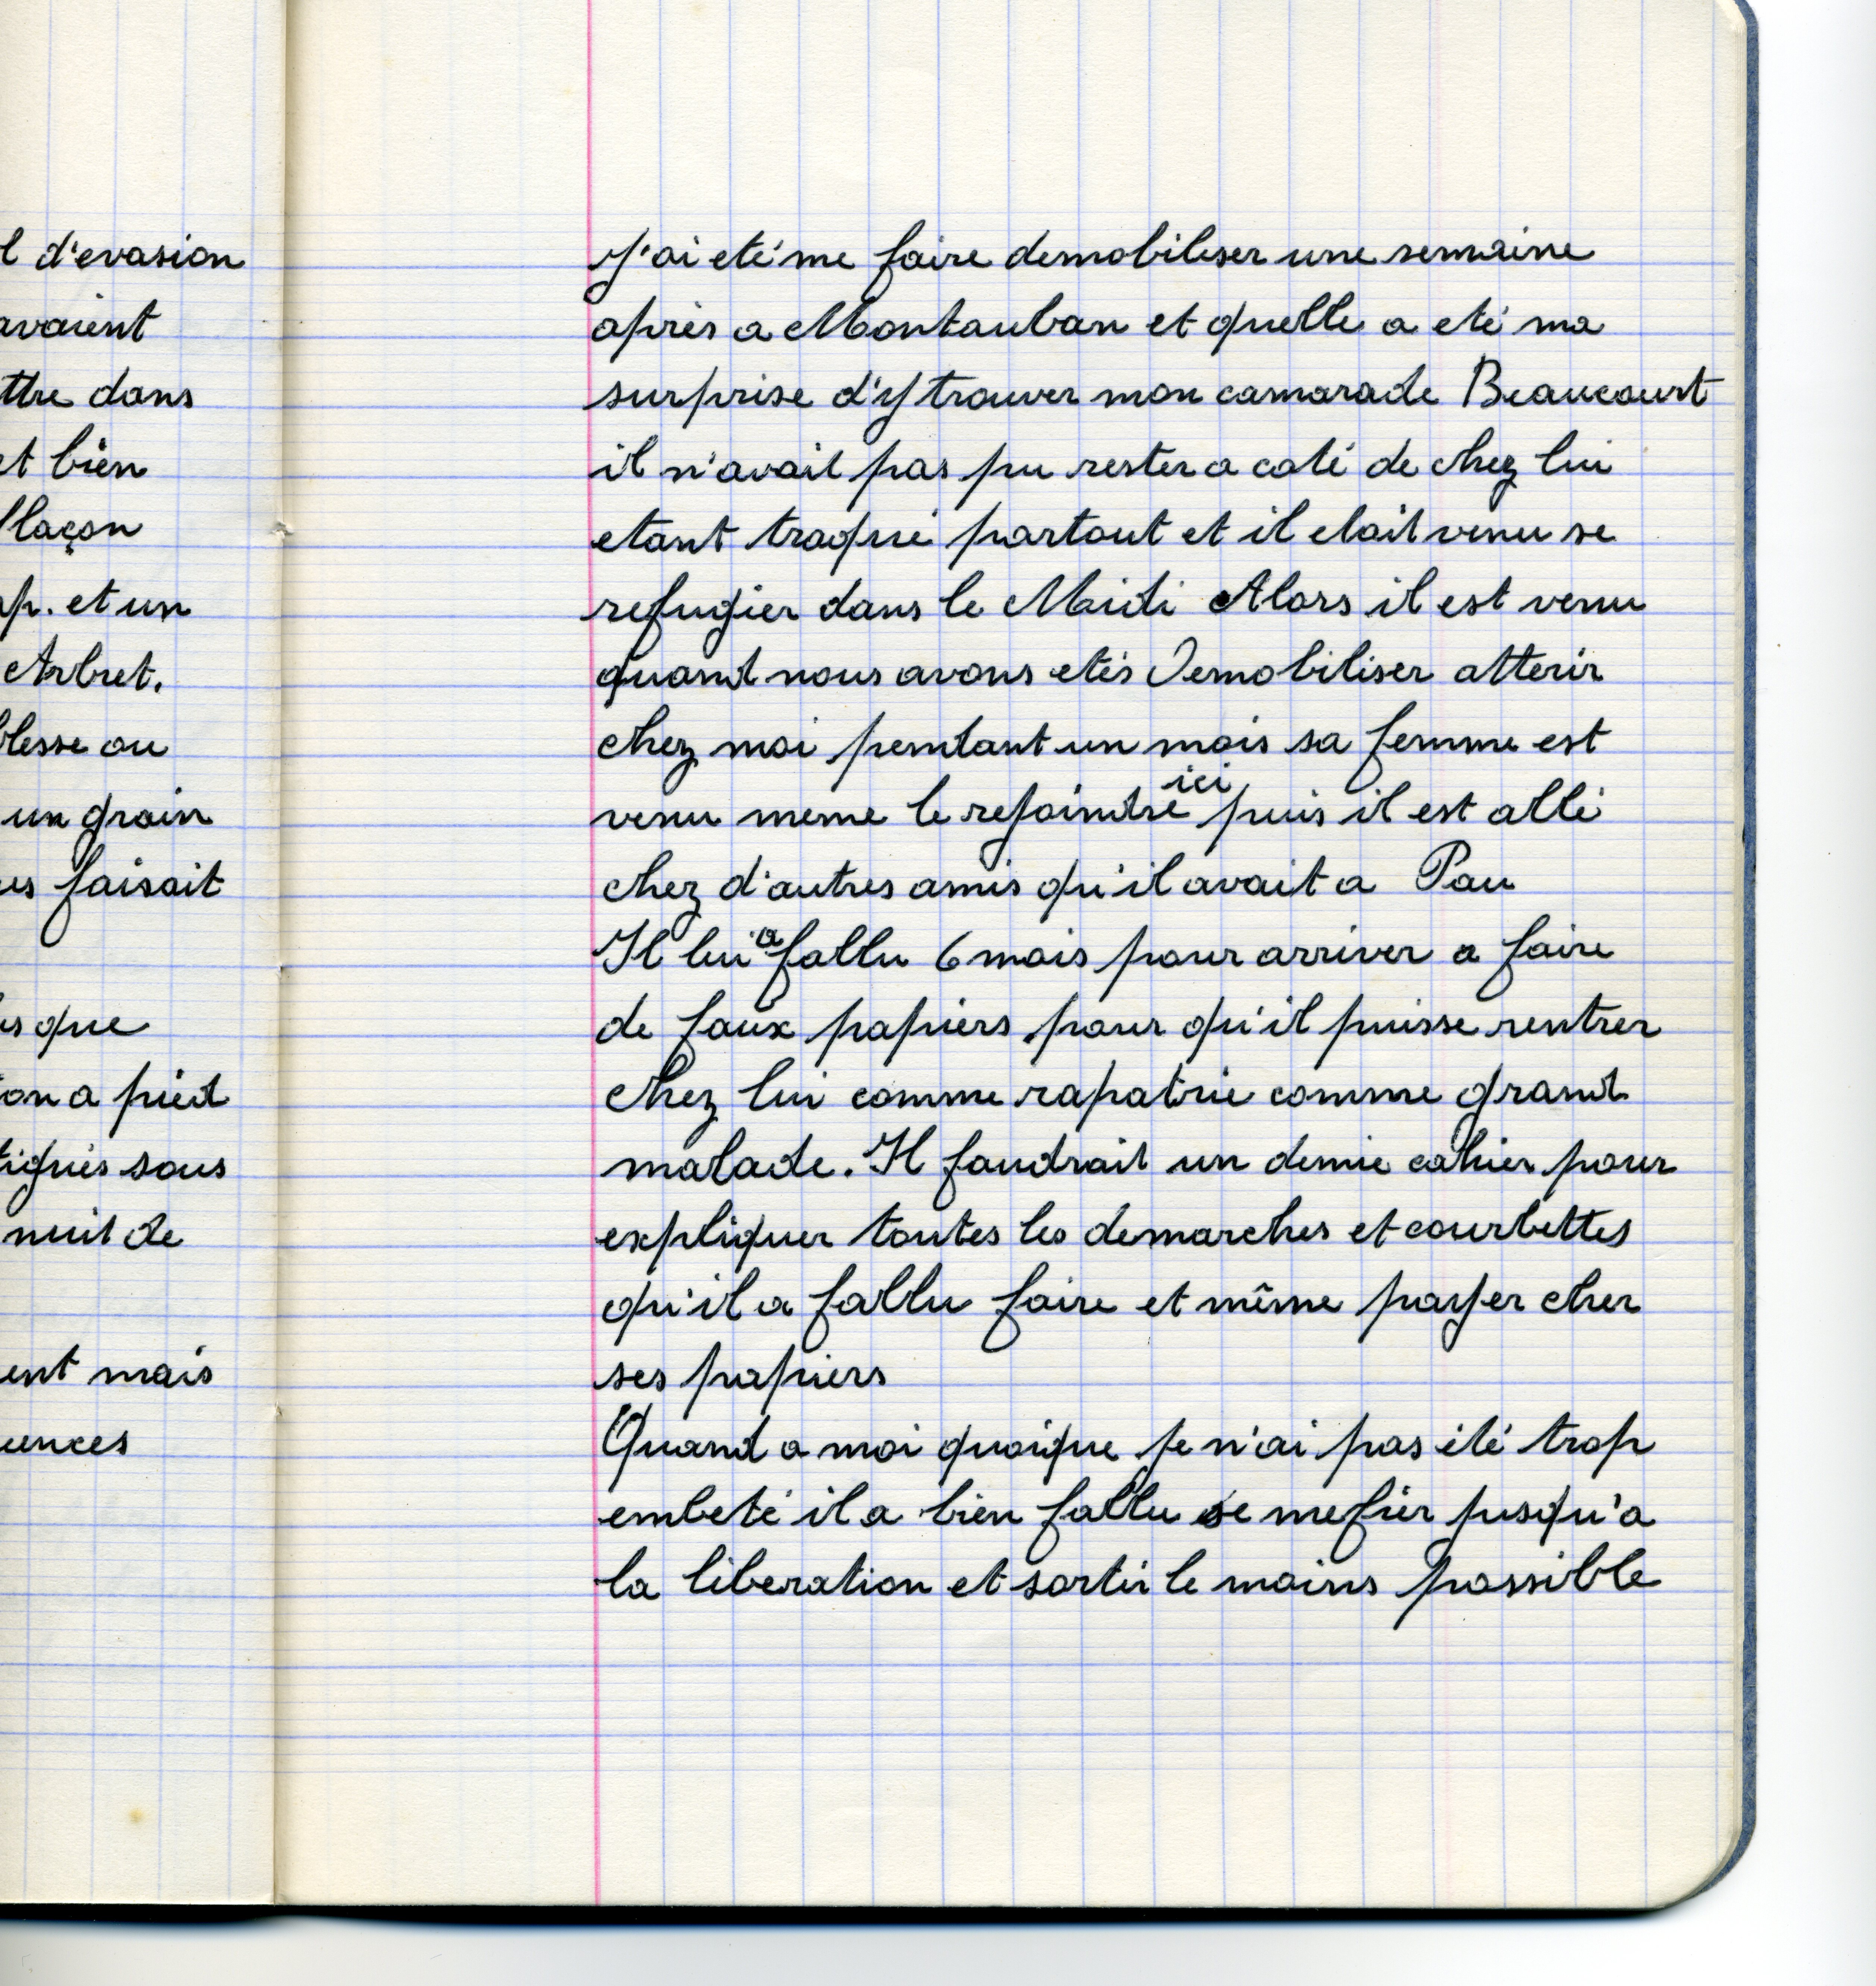 l d'evasion
avaient
ttre dans
et bien
laçon
ap. et un
Arbret.
blesse ou
un grain
ues faisait
es que
on a pied
tiqués sous
nuit de
ent mais
uences
J'ai eté me faire demobiliser une semaine
après a Montauban et quelle a eté ma
surprise d'y trouver mon camarade Beaucourt
il n'avait pas pu rester a coté de chez lui
etant traqué partout et il etait venu se
refugier dans le Midi Alors il est venu
quand nous avons etés Demobiliser atterir
chez moi pendant un mois sa femme est
venu meme le rejoindre ici puis il est allé
chez d'autres amis qu'il avait a Pau
Il lui a fallu 6 mois pour arriver a faire
de faux papiers pour qu'il puisse rentrer
chez lui comme rapatrié comme grand
malade. Il faudrait un demie cahier pour
expliquer toutes les demarches et courbettes
qu'il a fallu faire et même payer cher
ses papiers
Quand a moi quoique je n'ai pas été trop
embeté il a bien fallu se mefier jusqu'a
la liberation et sortir le moins possible